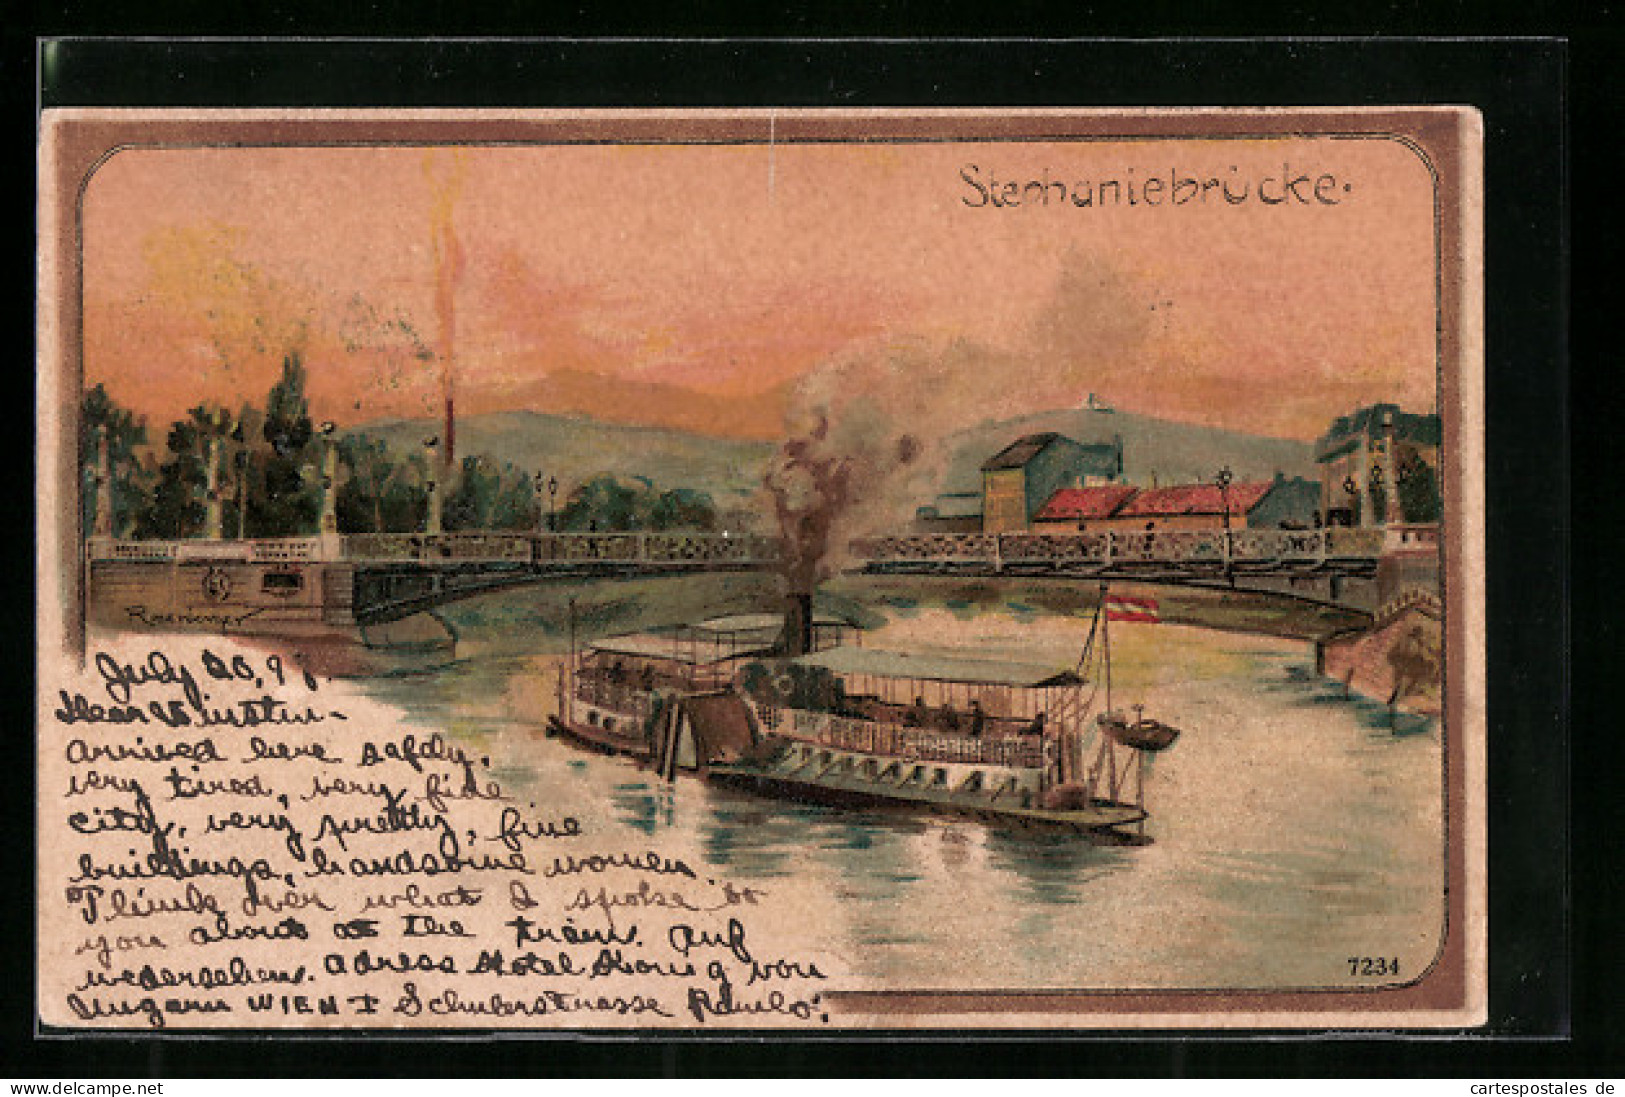 Stephaniebrücke.
July 20, 98.
Dear
arrived here safely,
very tired, very fine
city, very pretty, fine
buildings, handsome women
Think over what I spoke to
you about at the train. Auf
wiedersehen. Adress Hotel König von
Ungarn WIEN I Schulerstrasse
7234
cartespostales de